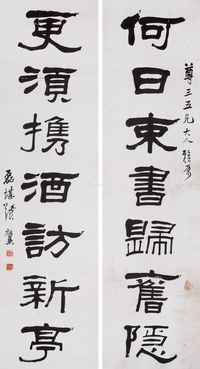 何日束書歸舊隱
更須攜酒訪新亭
尊三五兄大人雅屬